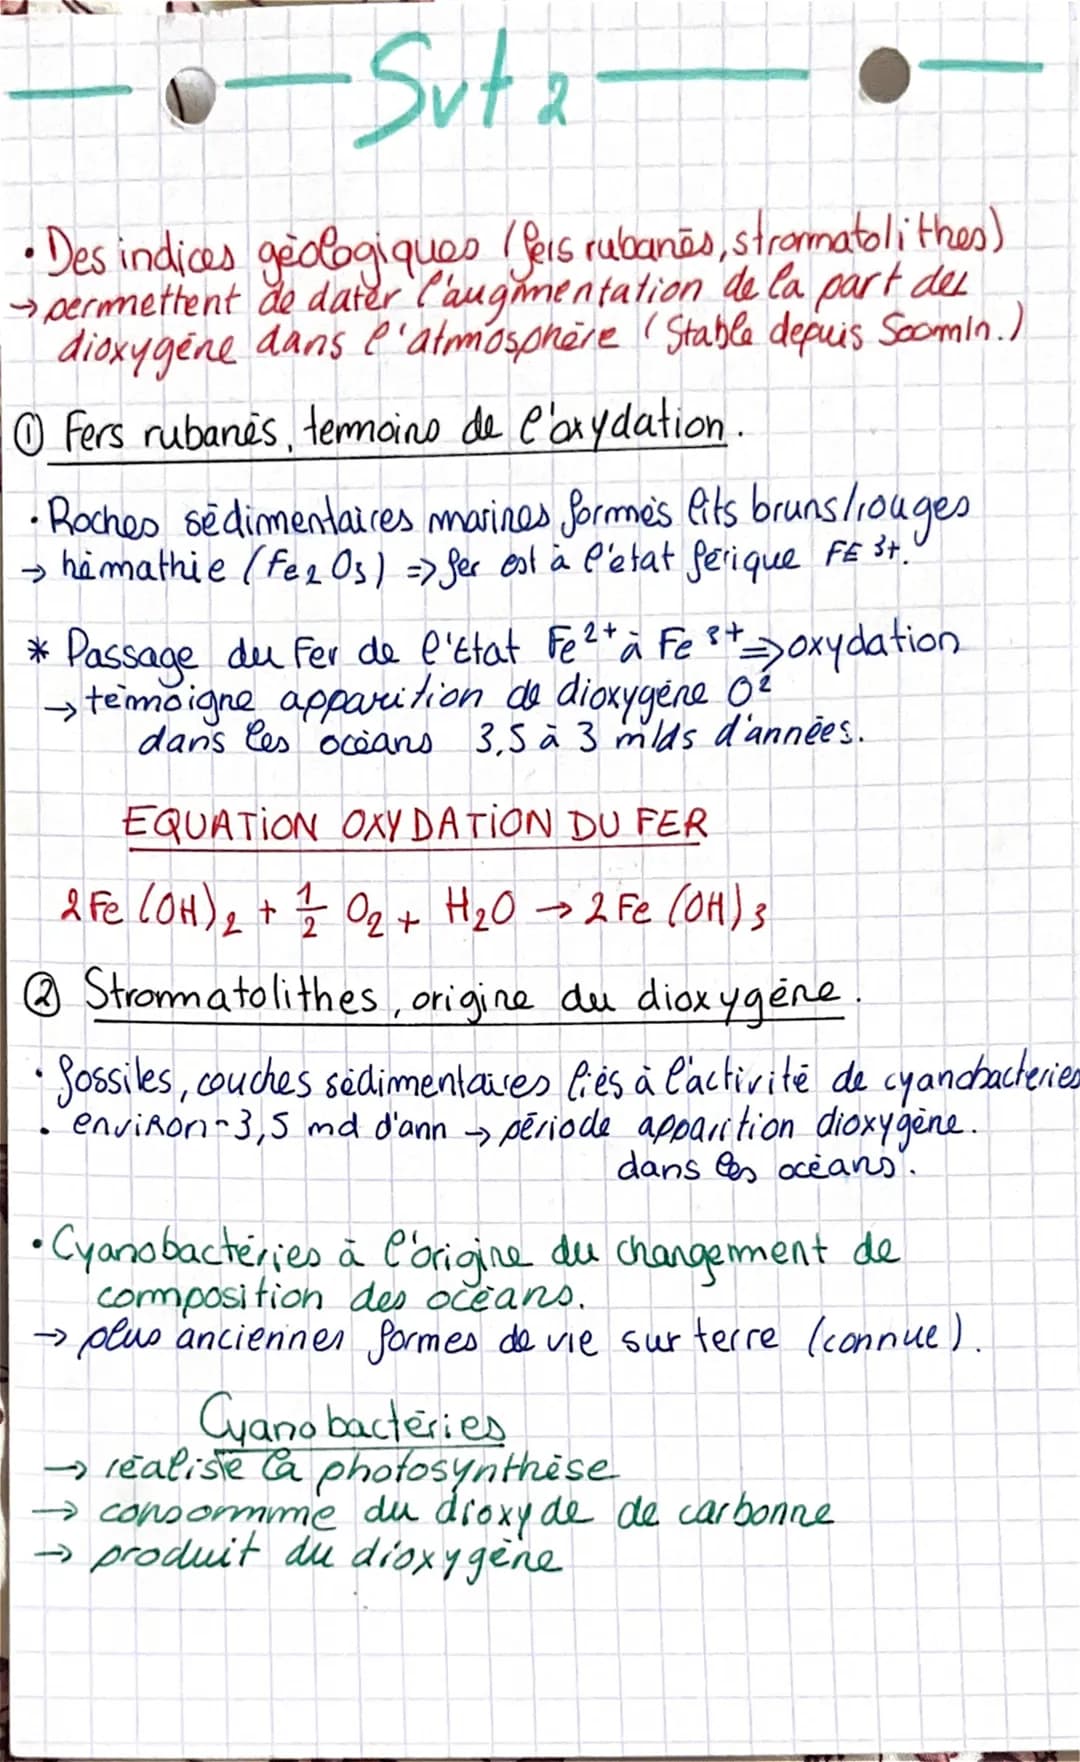 Svt 2
• Des indices géologiques (fers rubanés, stromatolithes)
→ permettent de dater l'augmentation de la part des
dioxygène dans l'atmosphère (Stable depuis 500mln.)
① Fers rubanés, temoins de l'oxydation.
• Roches sédimentaires marines formés lits bruns/rouges
→ hémathie (Fe2O3) => fer est à l'etat férique FE 3+.
* Passage du Fer de l'Etat Fe2+ à Fe 3+ => oxydation
→ témoigne apparition de dioxygène O2
dans les océans 3,5 à 3 mlds d'années.
EQUATION OXYDATION DU FER
2Fe(OH)2 + 1/2 O2 + H2O → 2Fe(OH)3
② Stromatolithes, origine du dioxygène.
• fossiles, couches sédimentaires liés à l'activité de cyanobacteries
• environ -3,5 md d'ann → période apparition dioxygène.
dans les océans.
• Cyanobactéries à l'origine du changement de
composition des océans.
→ plus anciennes formes de vie sur terre (connue).
Cyanobactéries
→ réalise la photosynthèse
→ consomme du dioxyde de carbonne
→ produit du dioxygène